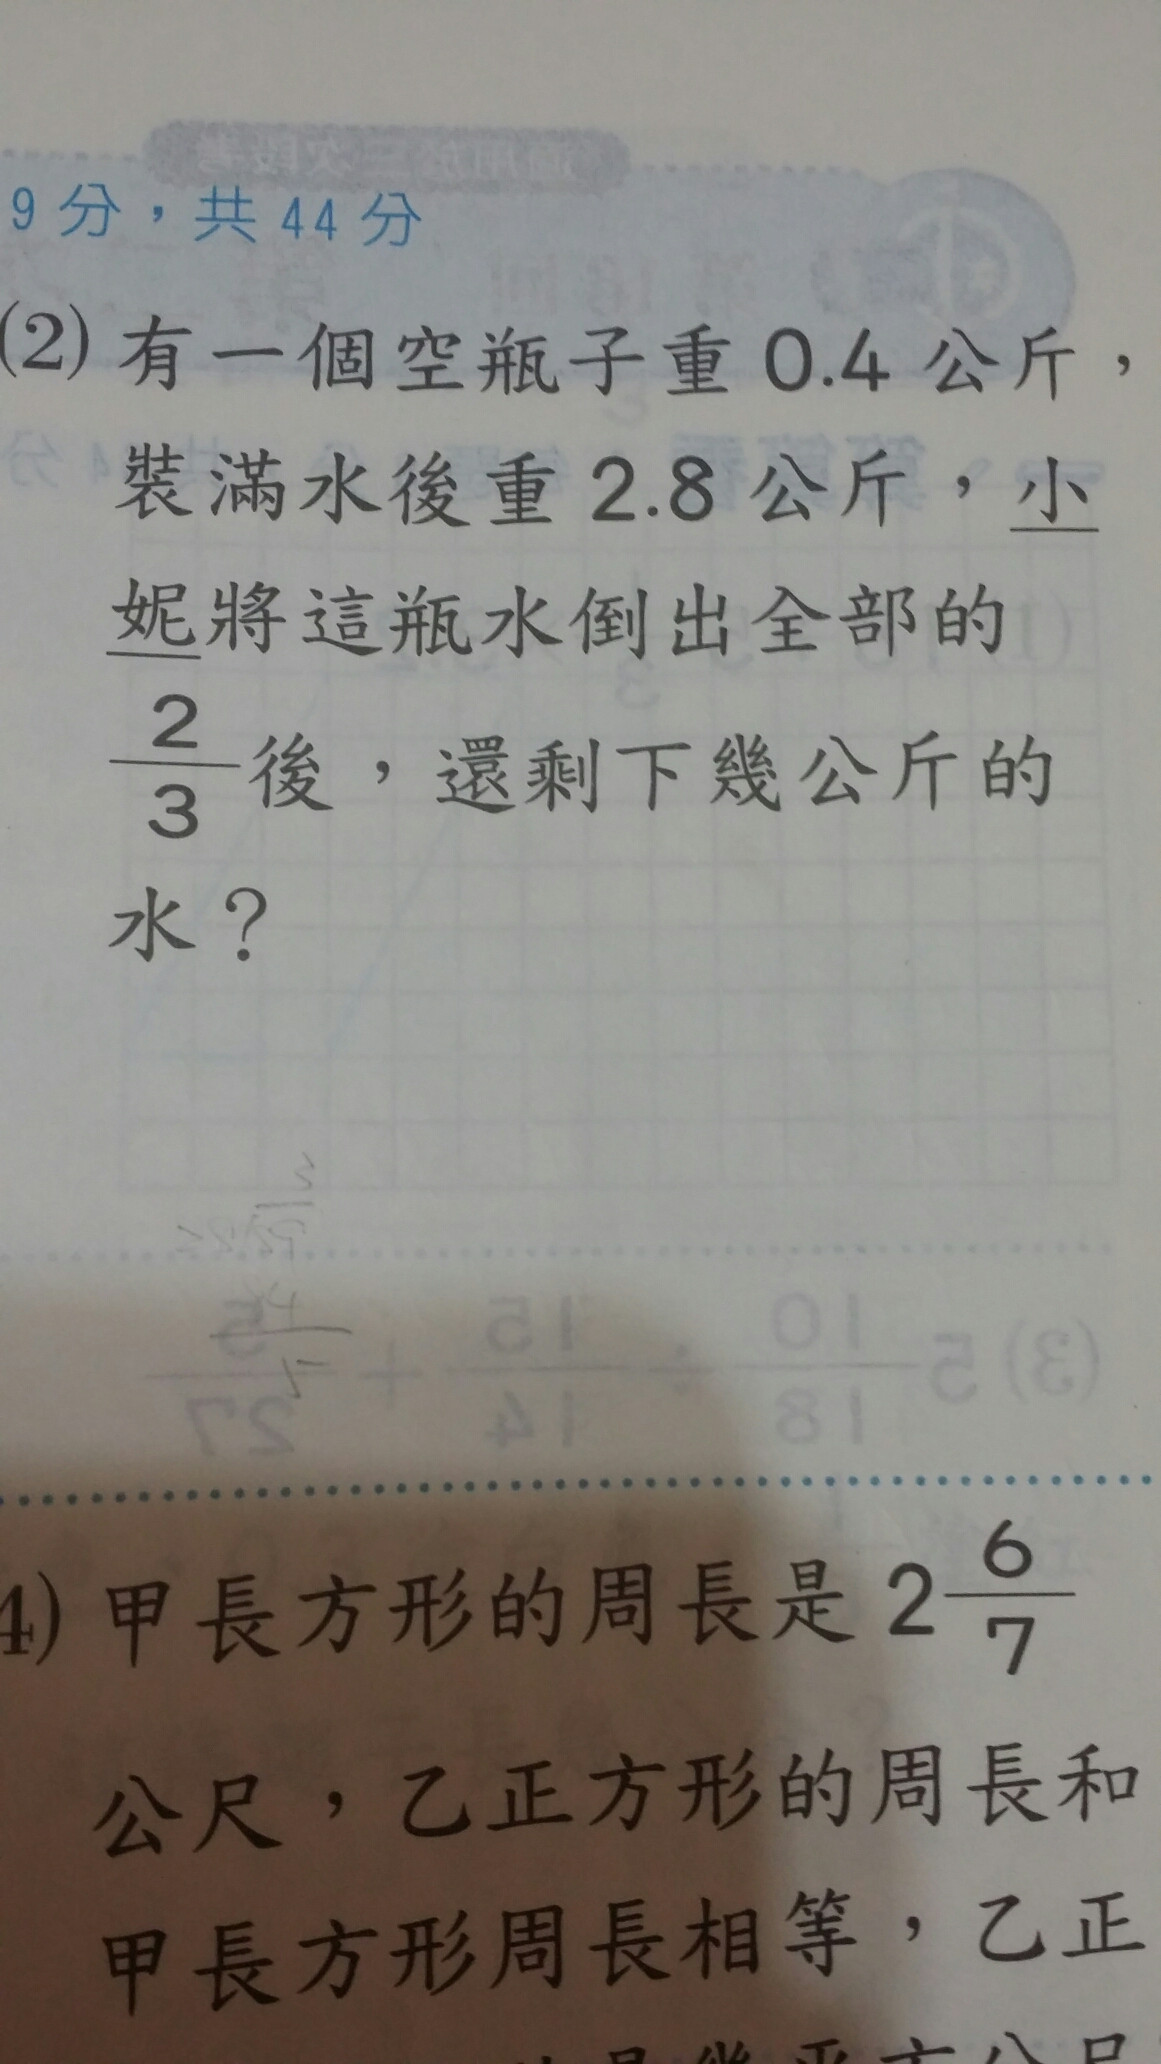 9 分，共 44 分
(2) 有一個空瓶子重 0.4 公斤，
裝滿水後重 2.8 公斤，小
妮將這瓶水倒出全部的
2/3 後，還剩下幾公斤的
水？
4) 甲長方形的周長是 2 6/7
公尺，乙正方形的周長和
甲長方形周長相等，乙正